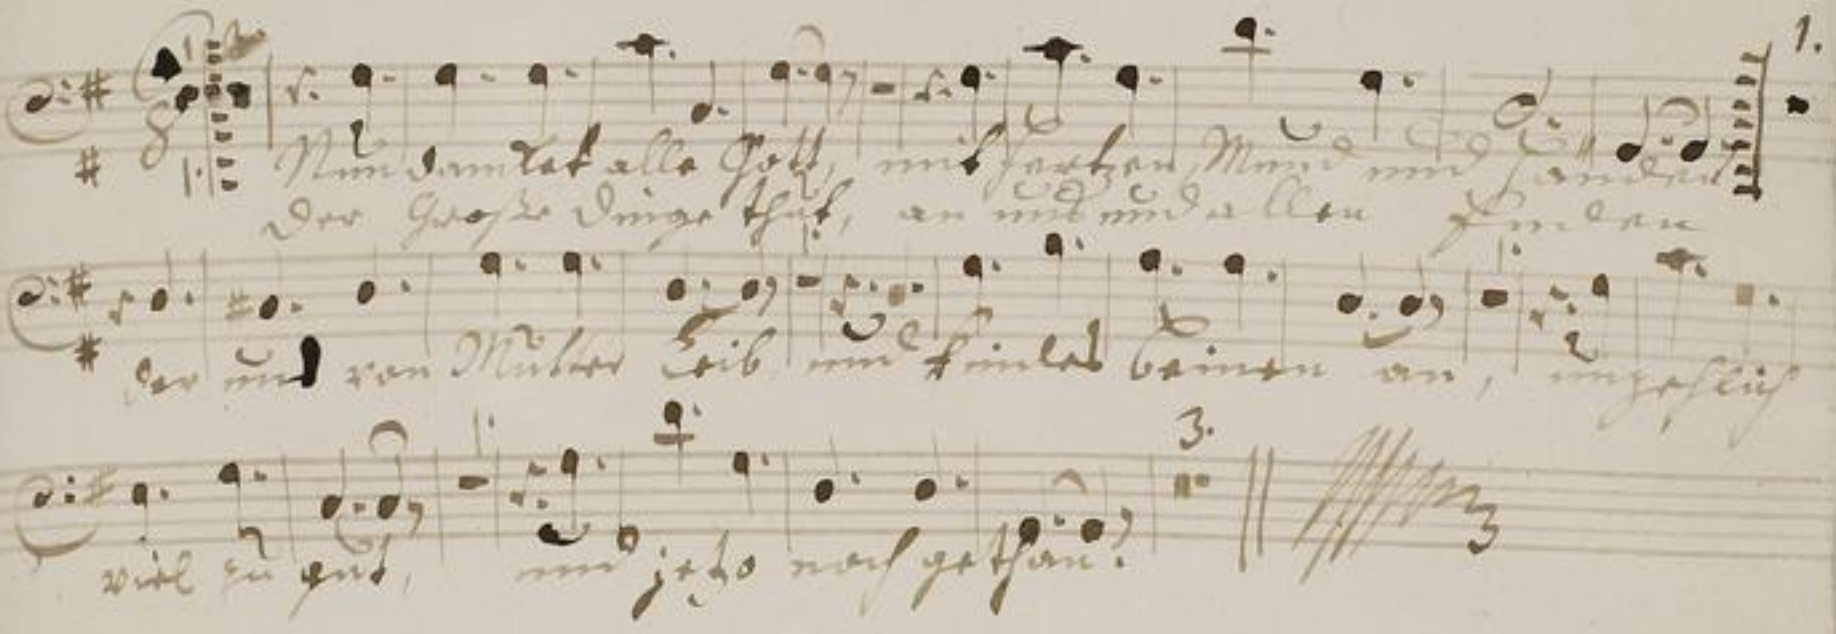 1.
Nun danket alle Gott, mit Hertzen Mund und Händen
Der Große Dinge thut, an uns und allen Enden
der uns von Mutter Leib und Kindes beinen an, unzehlich
3.
viel zu gut, und jetzo noch gethan.